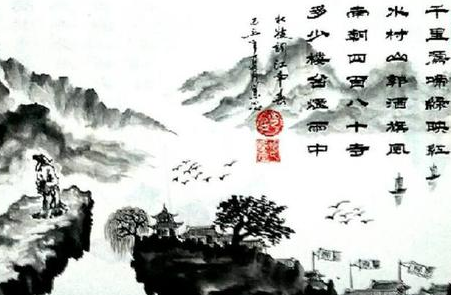 千里鶯啼綠映紅
水村山郭酒旗風
南朝四百八十寺
多少樓台煙雨中
杜牧詞江南春